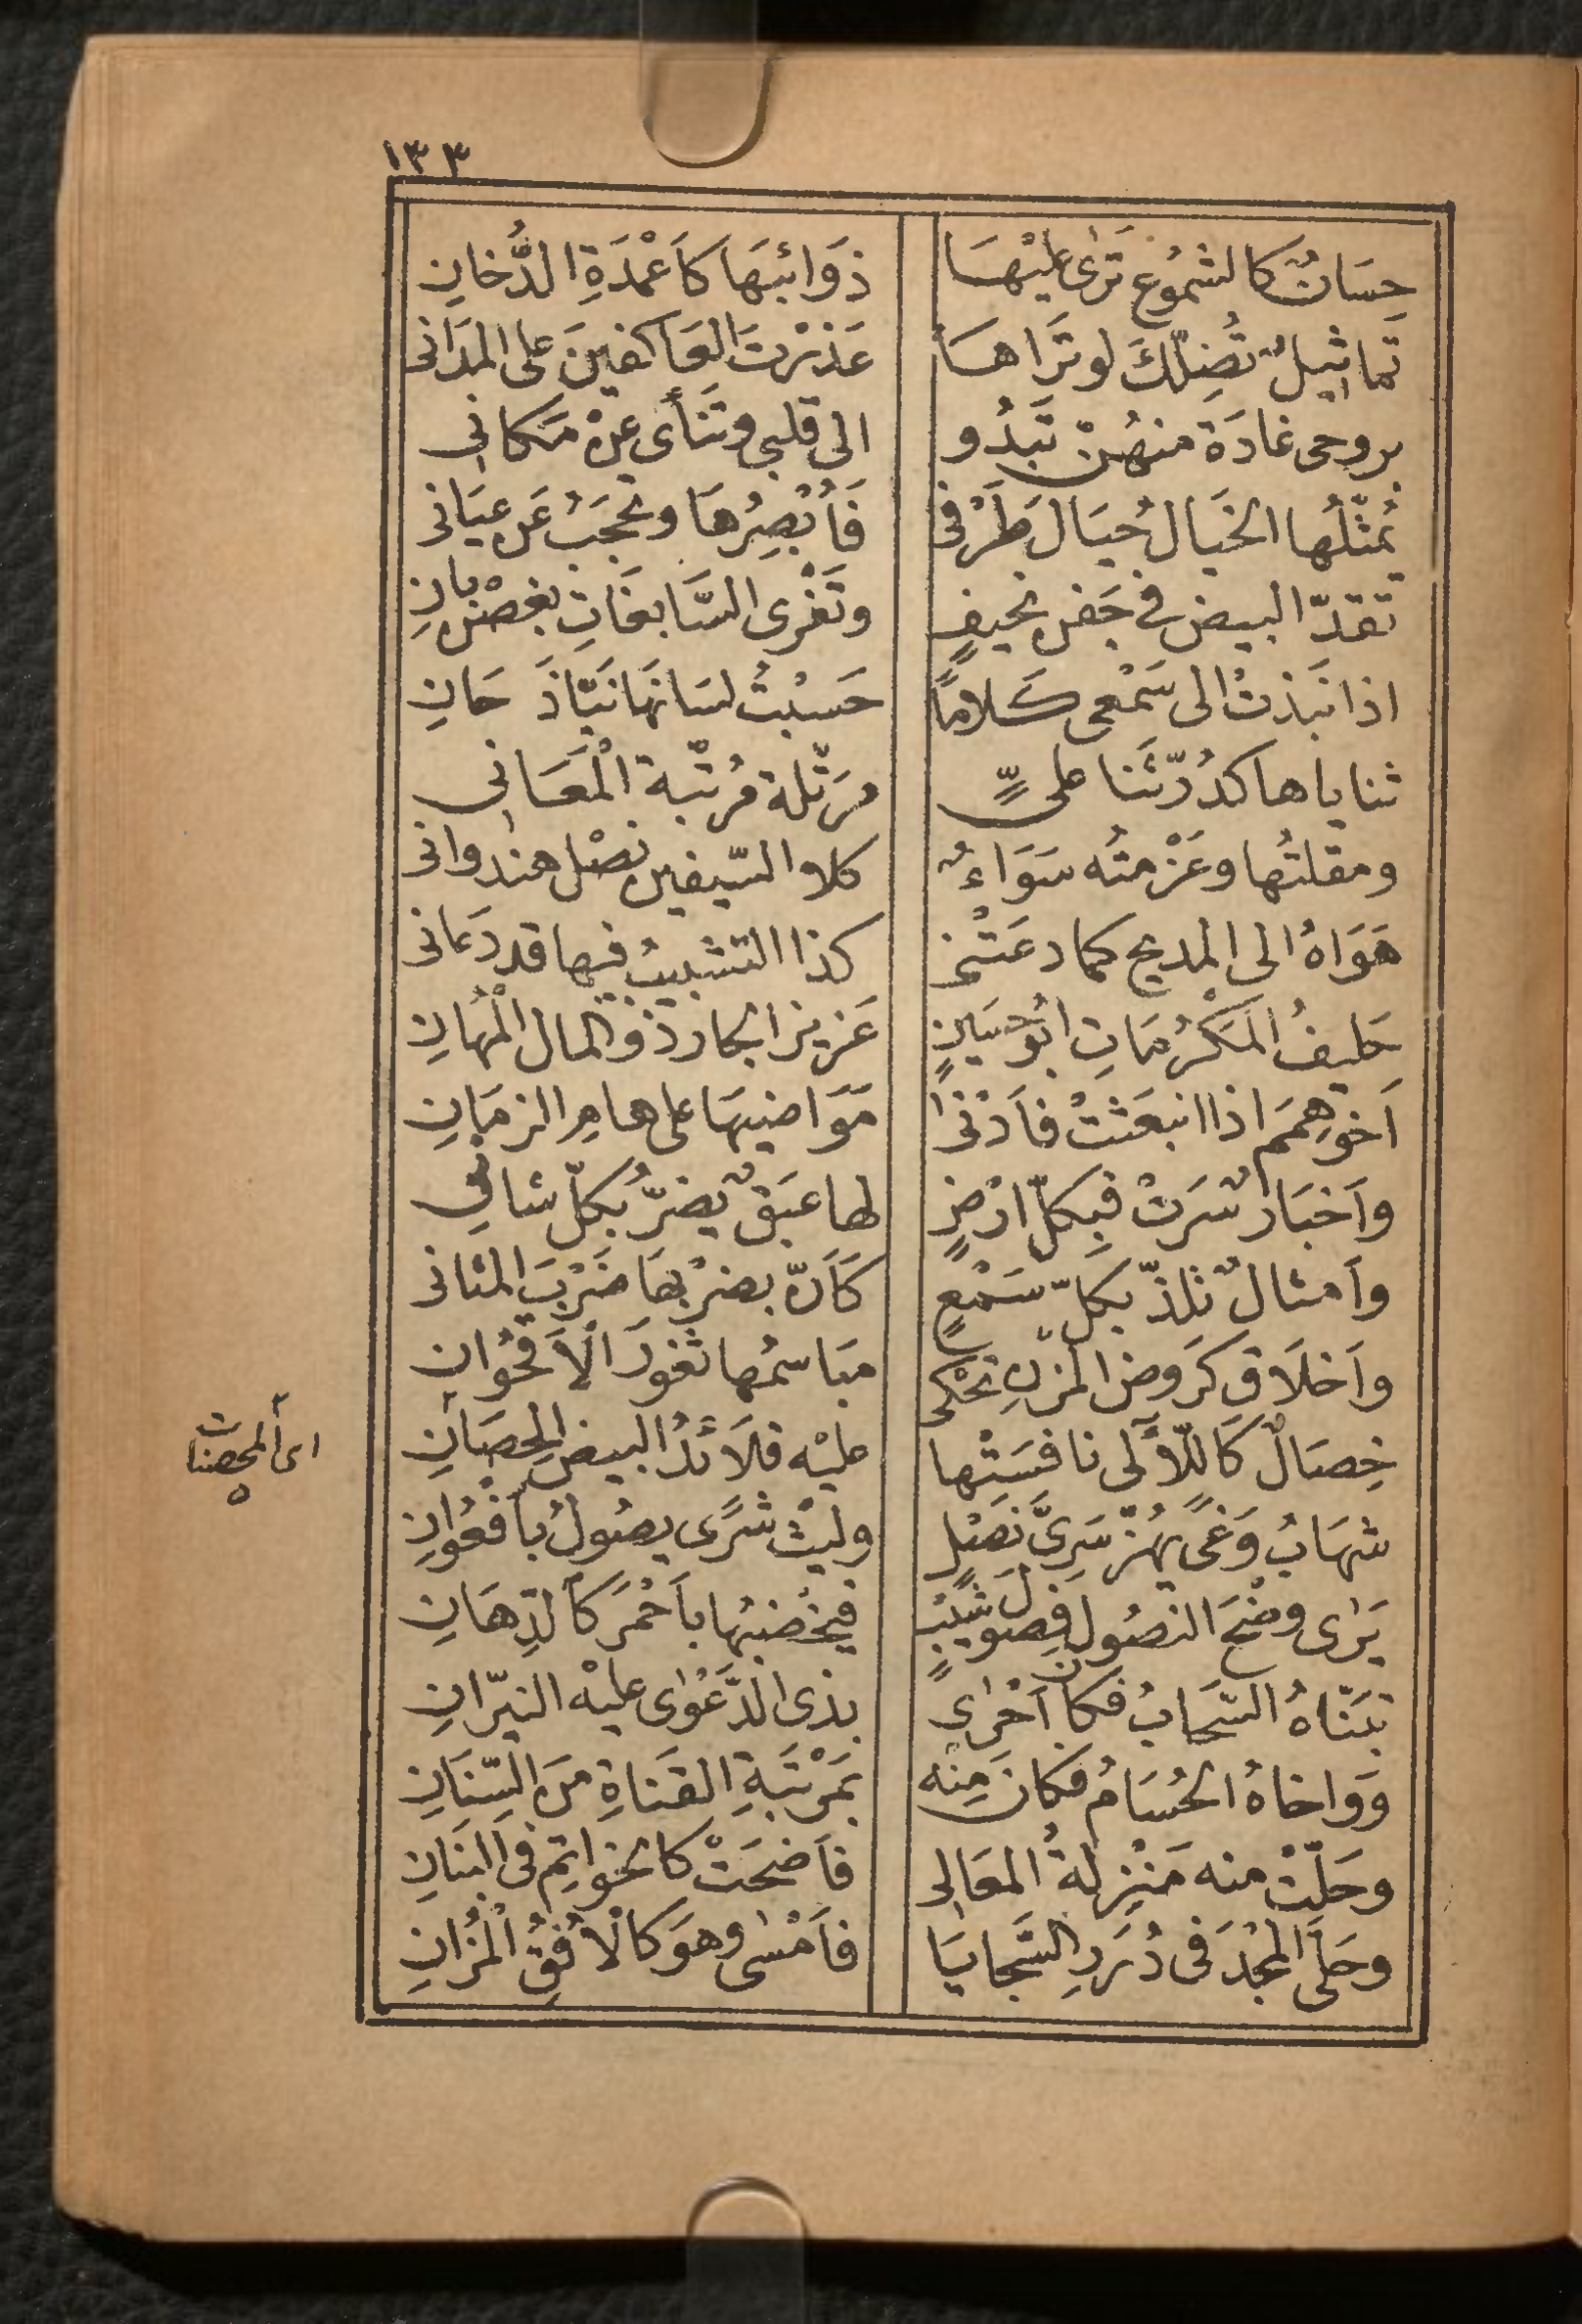 ١٣٣
حِسَانٌ كالشمُوع تَرٰى عليْهَا ذوَائبَهَا كاَعْمدَةِ الدُّخانِ
تماثيلٌ تُضِلّكَ لو تَرَاهَا عَذرْتَ العَاكفينَ على المدَانى
بروحى غادَة منهُنّ تَبدُو الى قلبى وتَنأى عنْ مَكانى
يُمثّلُها الخَيال حُيَال طَرْفى فَأُبْصِرُهَا وتحجَبُ عَن عيَانى
تقدّ البيض فى جَفن نحيفٍ وتَفْرى السَّابغَاتِ بغصْن بانِ
اذا نَبَذتْ الى سَمْعى كَلامًا حَسبْتُ لسَانهَا نَبّاذَ حَانِ
ثناياها كدُرّ ثَنا علىٍّ مرَتّلة مُرتّبة الْمَعَانى
ومقلتُها وعَزْمتُه سَوَاءٌ كلا والسّيفين نصْل هندوانى
هَوَاهُ الى المديح كما دعَتْنى كذا التشبيبُ فيها قد دَعانى
حَليفُ المَكْرُمَاتِ ابُو حُسَينٍ عَزيز الجار ذو المال الْمُهانِ
اَخو هِمَم اذا انبعَثتْ فأدْنٰى مَوَاضيهَا على هامِ الزمَانِ
وَاَخبَارٌ سَرَتْ فبكلّ ارْضٍ لها عبَقٌ يضرُّ بكلّ شانِى
وأمثالٌ تلذّ بكلّ سَمْعٍ كَأنّ بضرْبهَا ضَرْبَ المثانى
واَخلَاق كرَوضِ المزنِ تحْكى مبَاسمُها ثغورَ الْأَقحُوانِ
خِصَالٌ كَاللّآلى نافسَتْها عليْه قلَائدُ البيض الحِصَانِ
اى المحصنات
شهَابُ وَغًى يهُزّ سَرِىَّ نَصْلٍ وليْث شرًى يصُولُ بأفْعُوانِ
يَرٰى وضْحَ النصُولِ فصُولَ شيْبٍ فيخْضبُها بأحْمرَ كالدِّهَانِ
تبَنّاهُ السَّحَابُ فكان اَحْرٰى بذى الدَّعْوٰى عليْه النيّرانِ
وَواخاهُ الحُسَامُ فكانَ مِنْه بمَرْتبَةِ القَناةِ منَ السِّنَانِ
وحَلّتْ منه مَنْزلةُ المعَالى فأضحَتْ كالخواتِم فى البَنَانِ
وحَلَّى المجْدَ فى دُرَرِ السَّجايَا فأمْسٰى وهوَ كالْأفُقِ الْمُزَانِ